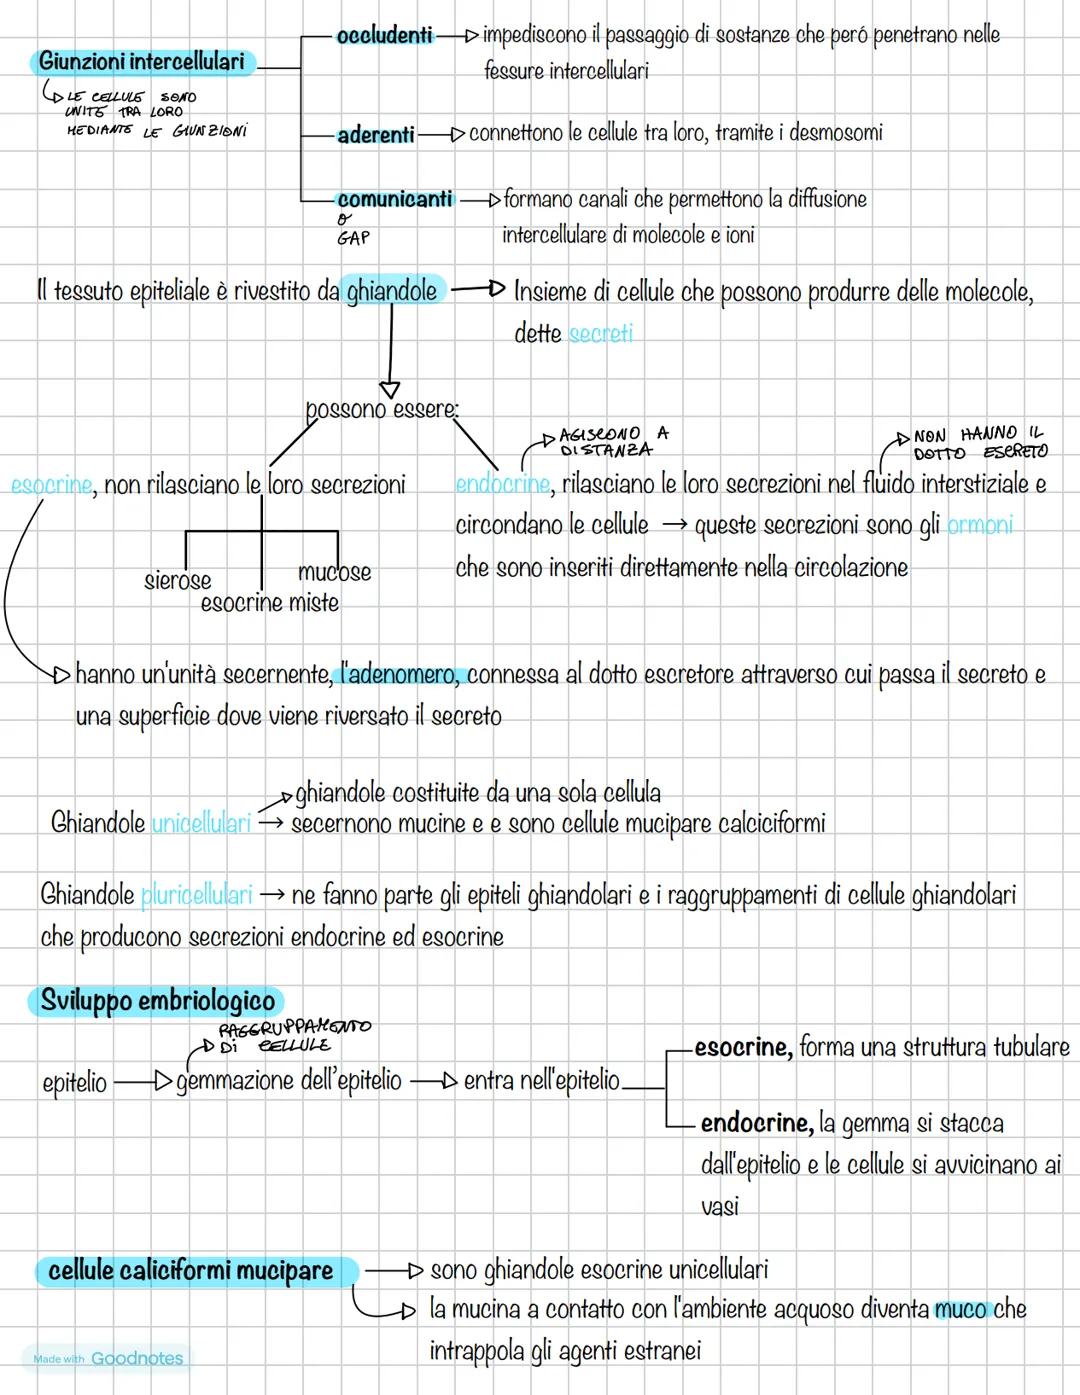 Giunzioni intercellulari
LE CELLULE SONO
UNITE TRA LORO
MEDIANTE LE GIUNZIONI
occludenti → impediscono il passaggio di sostanze che peró penetrano nelle
fessure intercellulari
aderenti → connettono le cellule tra loro, tramite i desmosomi
comunicanti → formano canali che permettono la diffusione
o
GAP
intercellulare di molecole e ioni
Il tessuto epiteliale è rivestito da ghiandole → Insieme di cellule che possono produrre delle molecole,
dette secreti
possono essere:
AGISCONO A
DISTANZA
NON HANNO IL
DOTTO ESCRETO
esocrine, non rilasciano le loro secrezioni
sierose
mucose
esocrine miste
endocrine, rilasciano le loro secrezioni nel fluido interstiziale e
circondano le cellule → queste secrezioni sono gli ormoni
che sono inseriti direttamente nella circolazione
hanno un'unità secernente, l'adenomero, connessa al dotto escretore attraverso cui passa il secreto e
una superficie dove viene riversato il secreto
ghiandole costituite da una sola cellula
Ghiandole unicellulari → secernono mucine e e sono cellule mucipare calciciformi
Ghiandole pluricellulari → ne fanno parte gli epiteli ghiandolari e i raggruppamenti di cellule ghiandolari
che producono secrezioni endocrine ed esocrine
Sviluppo embriologico
RAGGRUPPAMENTO
Di CELLULE
epitelio → gemmazione dell'epitelio → entra nell'epitelio
esocrine, forma una struttura tubulare
endocrine, la gemma si stacca
dall'epitelio e le cellule si avvicinano ai
vasi
cellule caliciformi mucipare → sono ghiandole esocrine unicellulari
la mucina a contatto con l'ambiente acquoso diventa muco che
intrappola gli agenti estranei
Made with Goodnotes